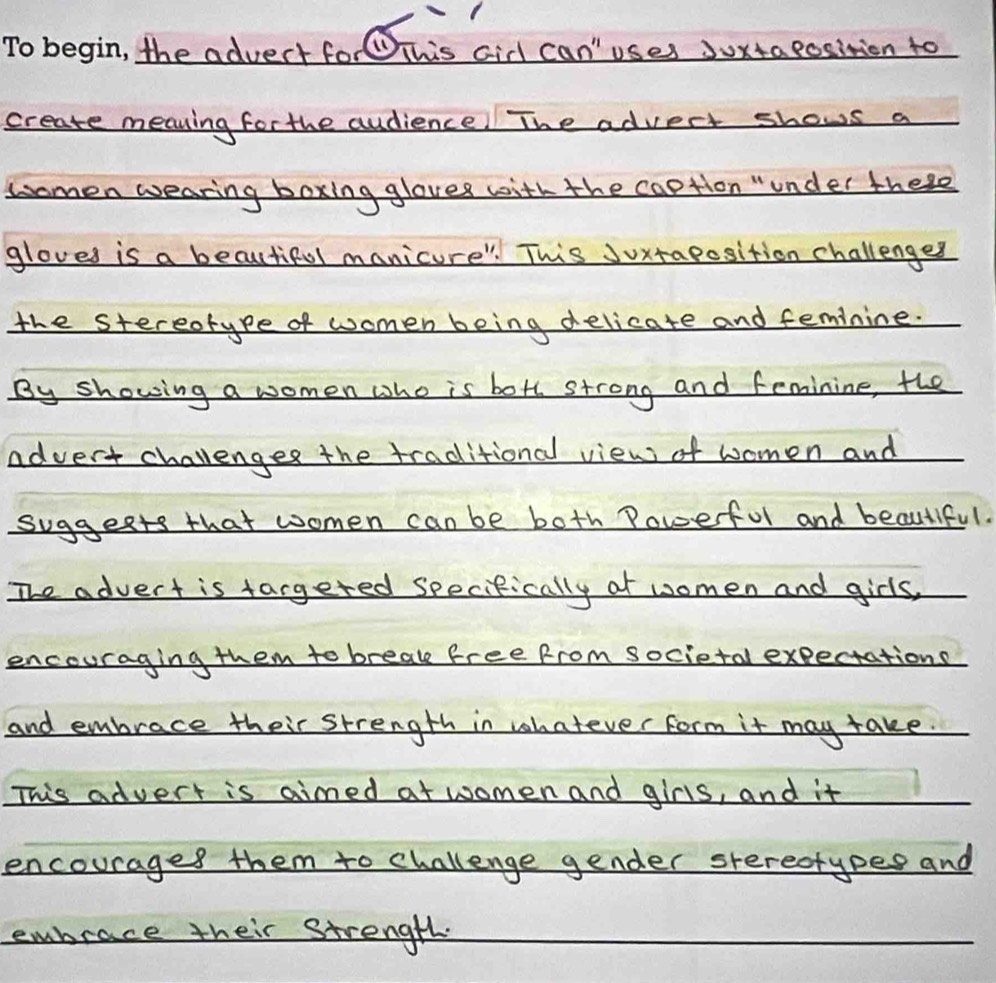 To begin, the advert for "This Girl Can" uses Juxtaposition to
create meaning for the audience. The advert shows a
women wearing boxing gloves with the caption "under these
gloves is a beautiful manicure". This Juxtaposition challenges
the stereotype of women being delicate and feminine.
By showing a women who is both strong and feminine, the
advert challenges the traditional view of women and
suggests that women can be both Powerful and beautiful.
The advert is targeted specifically at women and girls,
encouraging them to break free from societal expectations
and embrace their strength in whatever form it may take.
This advert is aimed at women and girls, and it
encourages them to challenge gender stereotypes and
embrace their strength.